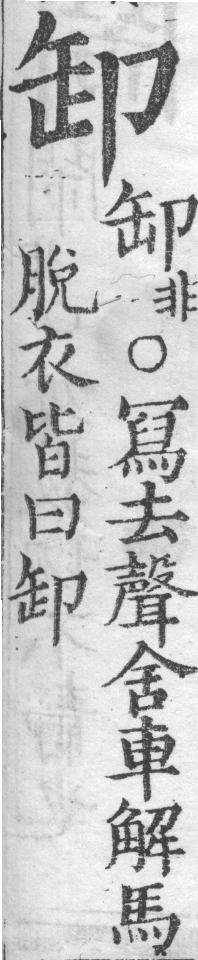 卸
缷非○冩去聲舍車解馬
脫衣皆曰卸